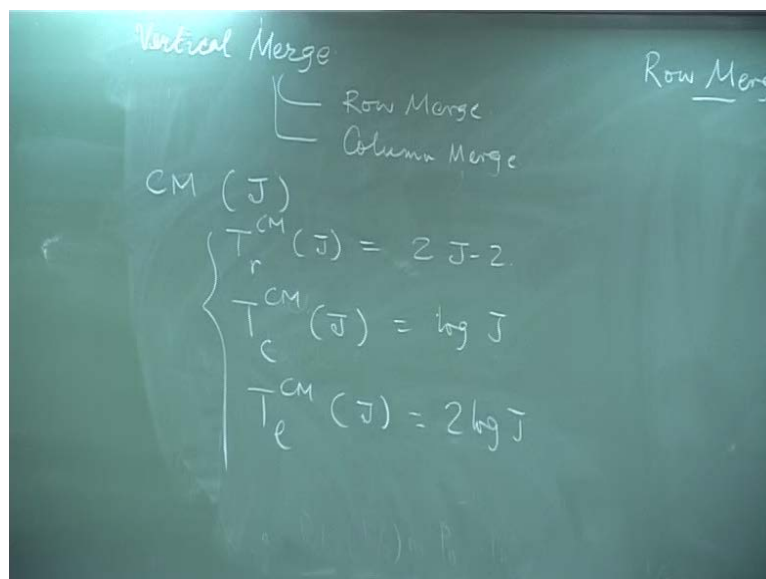 Vertical Merge
Row Merge
Column Merge
Row
CM (J)
T_r^CM (J) = 2 J - 2.
T_c^CM (J) = log J
T_e^CM (J) = 2 log J